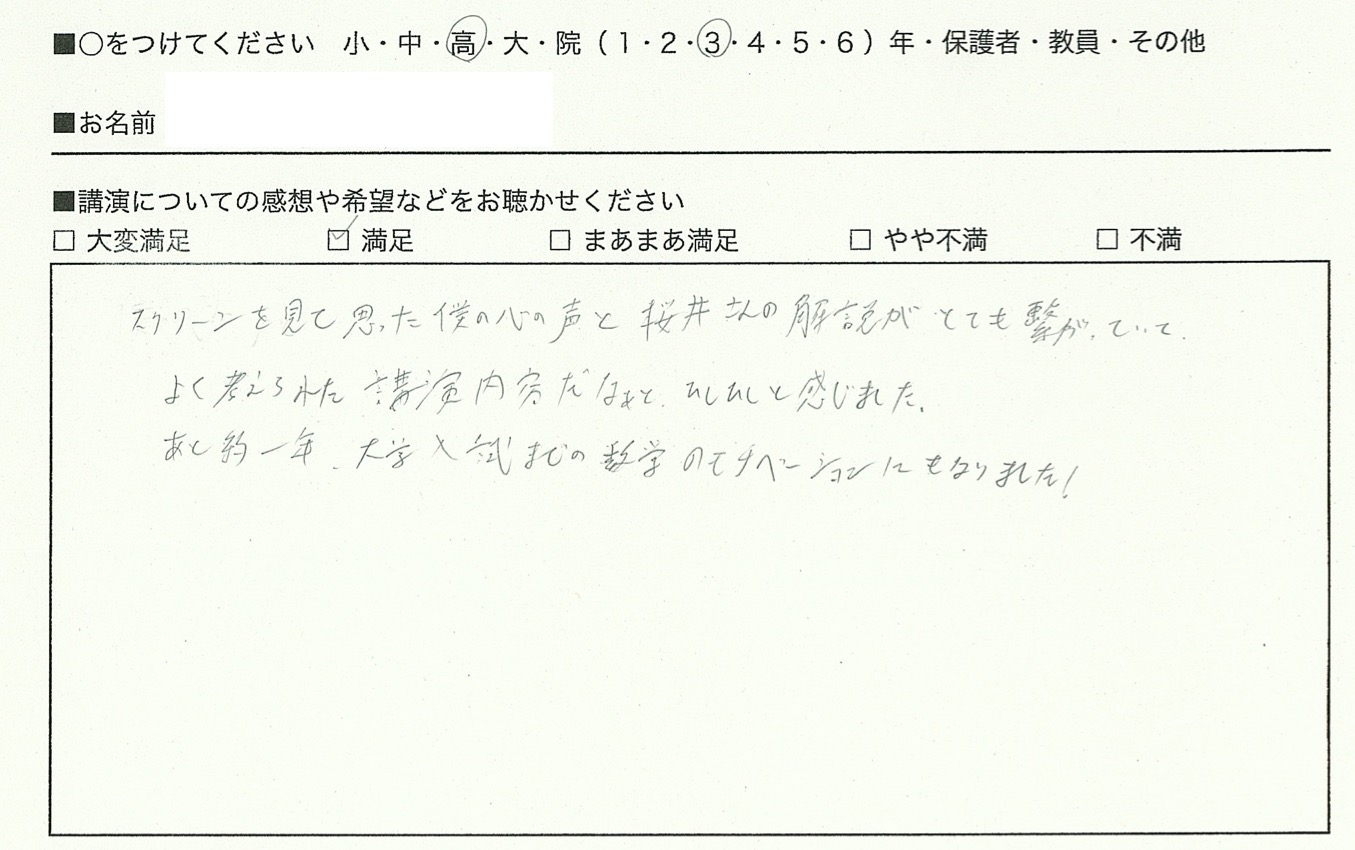 ■○をつけてください　小・中・高・大・院（１・２・３・４・５・６）年・保護者・教員・その他
■お名前
■講演についての感想や希望などをお聴かせください
□ 大変満足　☑ 満足　□ まあまあ満足　□ やや不満　□ 不満
スクリーンを見て思った僕の心の声と桜井さんの解説がとても繋がっていて、
よく考えられた講演内容だなぁと、ひしひしと感じました。
あと約一年、大学入試までの数学のモチベーションにもなりました!